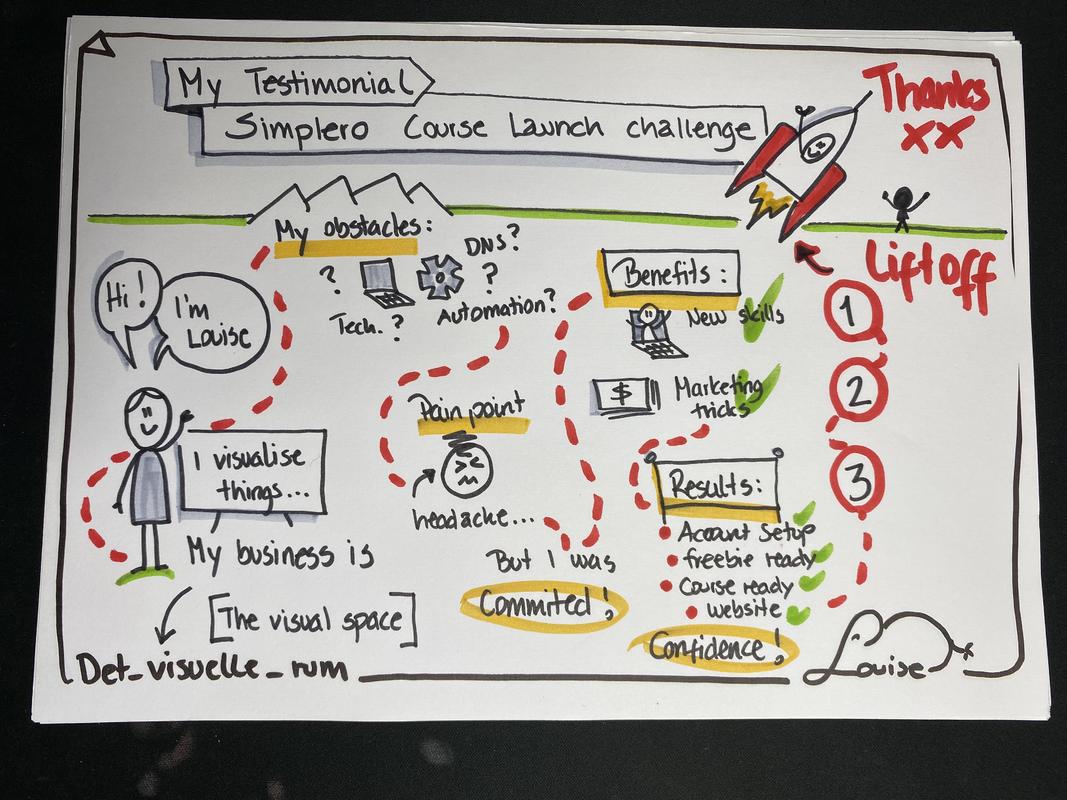 My Testimonial
Simplero Course Launch challenge
Thanks
xx
My obstacles:
DNS?
?
?
Tech. ?
Automation?
Hi!
I'm
Louise
I visualise
things...
My business is
[The visual space]
Det_visuelle_rum
Pain point
headache...
But I was
Commited!
Benefits:
New skills
$
Marketing
tricks
Results:
Account Setup
freebie ready
Course ready
website
Confidence!
Lift off
1
2
3
Louise